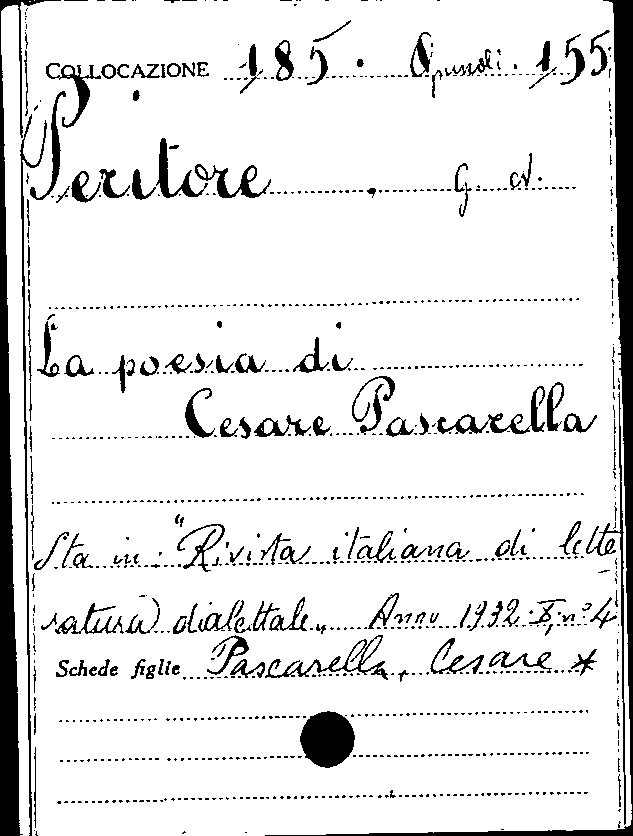 COLLOCAZIONE 185. Opuscoli. 155
Peritore . G. A.
La poesia di
Cesare Pascarella
Sta in: "Rivista italiana di lette
ratura dialettale„ Anno 1932. X, n° 4
Schede figlie Pascarella, Cesare *